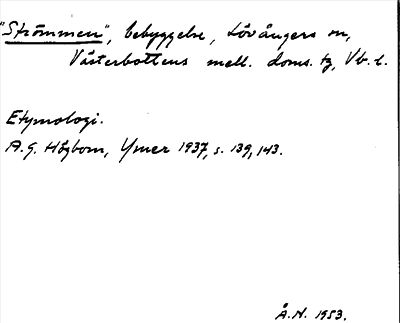 "Strömmen", bebyggelse, Lövångers sn,
Västerbottens mell. doms. tg, Vb. l.
Etymologi.
A.G. Högbom, Ymer 1937, s. 139, 143.
Å.N. 1953.